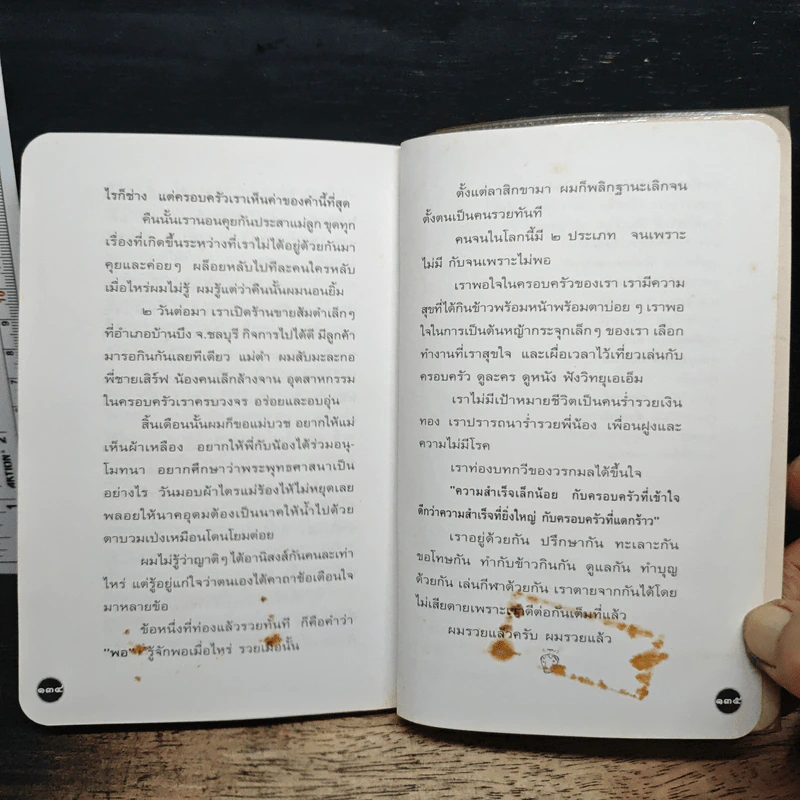 ไรก็ช่าง แต่ครอบครัวเราเห็นค่าของคำนี้ที่สุด
คืนนั้นเรานอนคุยกันประสาแม่ลูก ขุดทุก
เรื่องที่เกิดขึ้นระหว่างที่เราไม่ได้อยู่ด้วยกันมา
คุยและค่อยๆ ผล็อยหลับไปทีละคนใครหลับ
เมื่อไหร่ผมไม่รู้ ผมรู้แต่ว่าคืนนั้นผมนอนยิ้ม
๒ วันต่อมา เราเปิดร้านขายส้มตำเล็กๆ
ที่อำเภอบ้านบึง จ.ชลบุรี กิจการไปได้ดี มีลูกค้า
มารอกินกันเลยทีเดียว แม่ตำ ผมสับมะละกอ
พี่ชายเสิร์ฟ น้องคนเล็กล้างจาน อุตสาหกรรม
ในครอบครัวเราครบวงจร อร่อยและอบอุ่น
สิ้นเดือนนั้นผมก็ขอแม่บวช อยากให้แม่
เห็นผ้าเหลือง อยากให้พี่กับน้องได้ร่วมอนุ-
โมทนา อยากศึกษาว่าพระพุทธศาสนาเป็น
อย่างไร วันมอบผ้าไตรแม่ร้องไห้ไม่หยุดเลย
พลอยให้นาคอุตมต้องเป็นนาคให้น้ำไปด้วย
ตาบวมเป่งเหมือนโดนโยมต่อย
ผมไม่รู้ว่าญาติๆ ได้อานิสงส์กันคนละเท่า
ไหร่ แต่รู้อยู่แก่ใจว่าตนเองได้คาถาข้อเตือนใจ
มาหลายข้อ
ข้อหนึ่งที่ท่องแล้วรวยทันที ก็คือคำว่า
"พอ" รู้จักพอเมื่อไหร่ รวยเมื่อนั้น
๑๓๔
ตั้งแต่ลาสิกขามา ผมก็พลิกฐานะเลิกจน
ตั้งตนเป็นคนรวยทันที
คนจนในโลกนี้มี ๒ ประเภท จนเพราะ
ไม่มี กับจนเพราะไม่พอ
เราพอใจในครอบครัวของเรา เรามีความ
สุขที่ได้กินข้าวพร้อมหน้าพร้อมตาบ่อยๆ เราพอ
ใจในการเป็นต้นหญ้ากระจุกเล็กๆ ของเรา เลือก
ทำงานที่เราสุขใจ และเผื่อเวลาไว้เที่ยวเล่นกับ
ครอบครัว ดูละคร ดูหนัง ฟังวิทยุเอเอ็ม
เราไม่มีเป้าหมายชีวิตเป็นคนร่ำรวยเงิน
ทอง เราปรารถนาร่ำรวยพี่น้อง เพื่อนฝูงและ
ความไม่มีโรค
เราท่องบทกวีของวรกมลได้ขึ้นใจ
"ความสำเร็จเล็กน้อย กับครอบครัวที่เข้าใจ
ดีกว่าความสำเร็จที่ยิ่งใหญ่ กับครอบครัวที่แตกร้าว"
เราอยู่ด้วยกัน ปรึกษากัน ทะเลาะกัน
ขอโทษกัน ทำกับข้าวกินกัน ดูแลกัน ทำบุญ
ด้วยกัน เล่นกีฬาด้วยกัน เราตายจากกันได้โดย
ไม่เสียดายเพราะเราดีต่อกันเต็มที่แล้ว
ผมรวยแล้วครับ ผมรวยแล้ว
๑๓๕